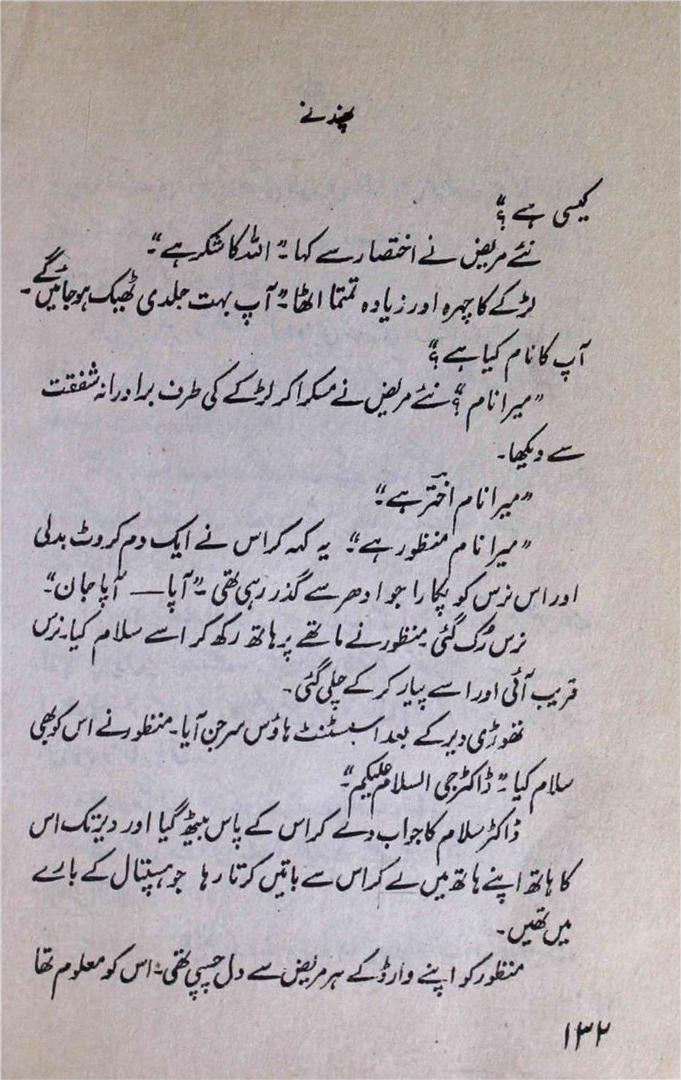 پھندنے
کیسی ہے ؟“
نئے مریض نے اختصار سے کہا۔ ”اللہ کا شکر ہے“۔
لڑکے کا چہرہ اور زیادہ تمتما اٹھا۔ ”آپ بہت جلدی ٹھیک ہو جائیں گے۔
آپ کا نام کیا ہے ؟“
”میرا نام ؟“ نئے مریض نے مسکرا کر لڑکے کی طرف برادرانہ شفقت
سے دیکھا۔
”میرا نام اختر ہے“۔
”میرا نام منظور ہے“۔ یہ کہہ کر اس نے ایک دم کروٹ بدلی
اور اس نرس کو پکارا جو ادھر سے گذر رہی تھی۔ ”آپا — آپا جان“۔
نرس رُک گئی۔ منظور نے ماتھے پر ہاتھ رکھ کر اسے سلام کیا۔ نرس
قریب آئی اور اسے پیار کر کے چلی گئی۔
تھوڑی دیر کے بعد اسسٹنٹ ہاؤس سرجن آیا۔ منظور نے اس کو بھی
سلام کیا۔ ”ڈاکٹر جی السلام علیکم“۔
ڈاکٹر سلام کا جواب دے کر اس کے پاس بیٹھ گیا اور دیر تک اس
کا ہاتھ اپنے ہاتھ میں لے کر اس سے باتیں کرتا رہا جو ہسپتال کے بارے
میں تھیں۔
منظور کو اپنے وارڈ کے ہر مریض سے دل چسپی تھی۔ اس کو معلوم تھا
۱۳۲